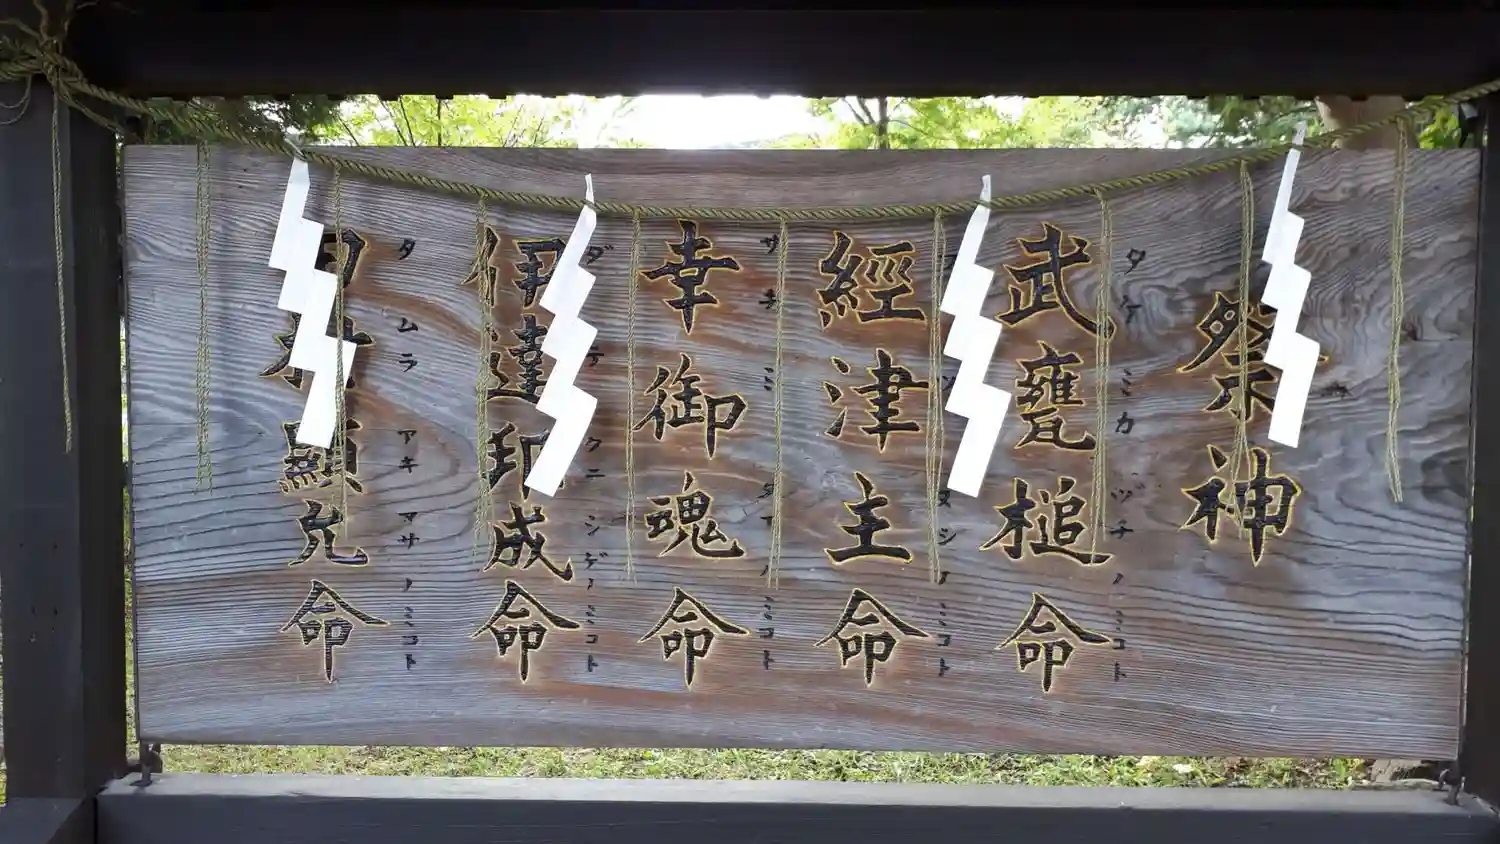 祭神
武甕槌命
タケミカヅチノミコト
經津主命
フツヌシノミコト
幸御魂命
サチミタマノミコト
伊達邦成命
ダテクニシゲノミコト
田村顯允命
タムラアキマサノミコト